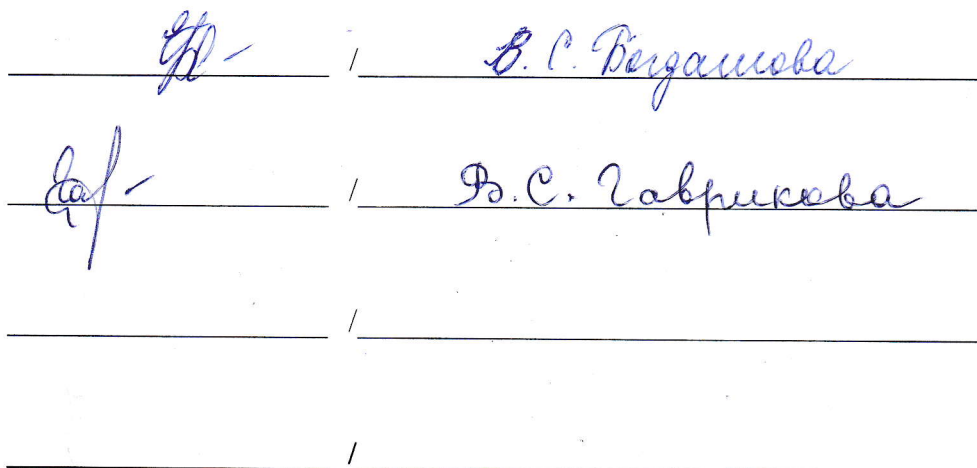 / В. С. Богдашова
/ В. С. Гаврикова
/
/